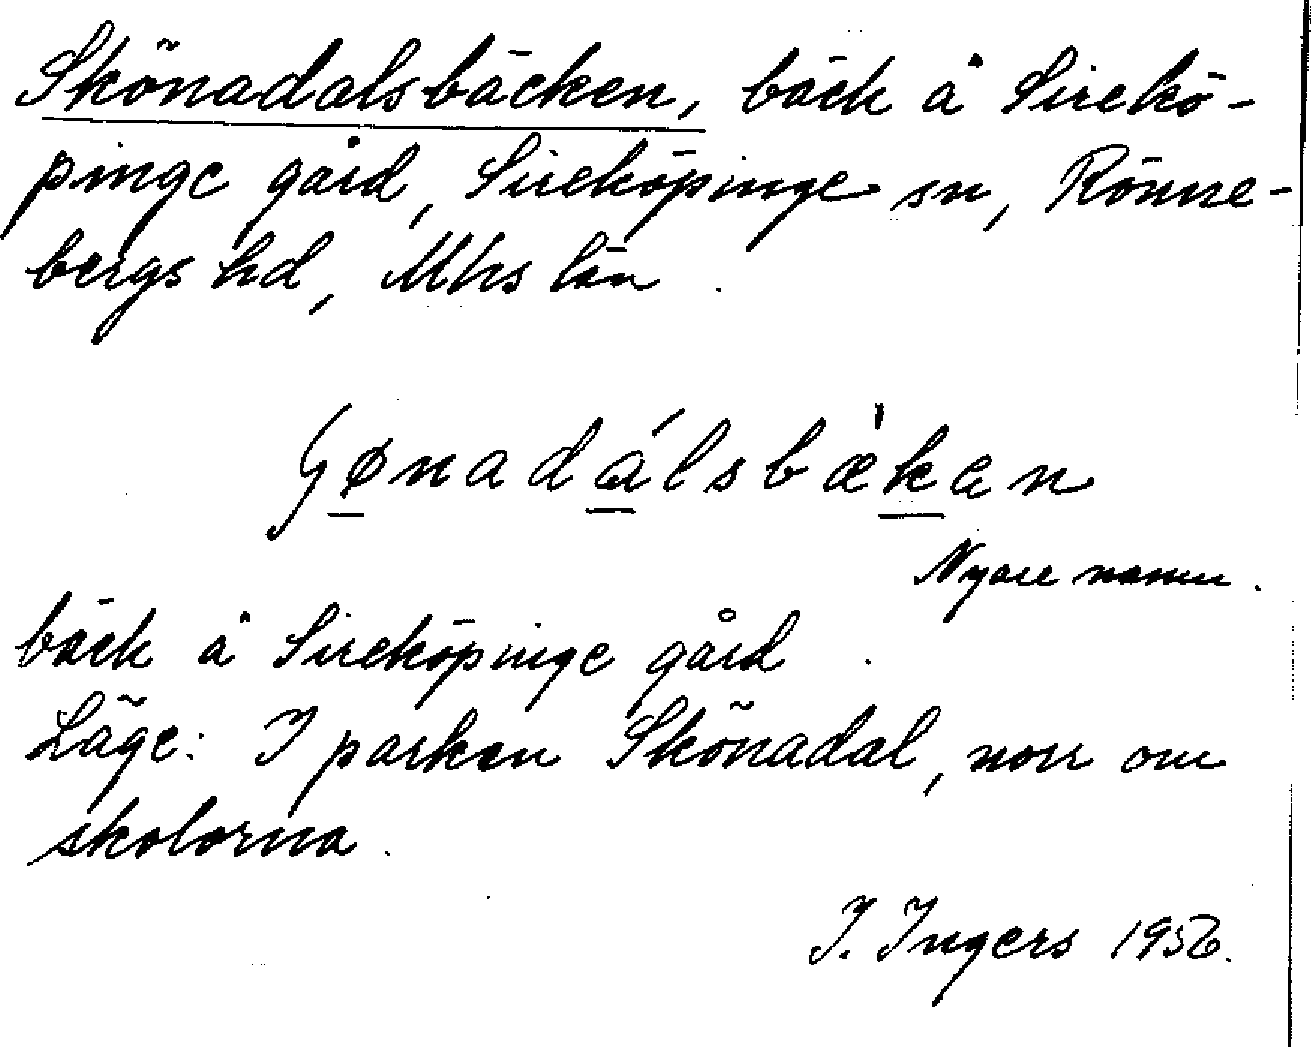 Skönadalsbäcken, bäck å Sirekö-
pinge gård, Sireköpinge sn, Rönne-
bergs hd, Mhs län.
ʃønadálsbæ̀kan
Nyare namn.
bäck å Sireköpinge gård.
Läge: I parken Skönadal, norr om
skolorna.
I. Ingers 1956.